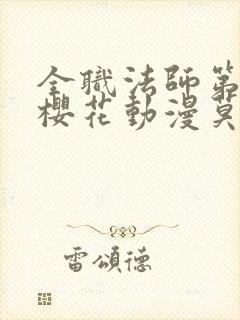 全職法師第
櫻花動漫莫
雷頌德